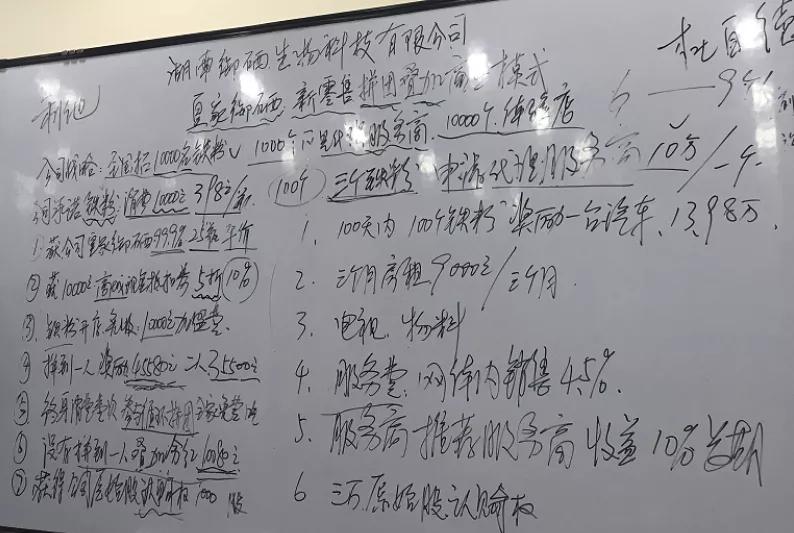 湖南御硒生物科技有限公司
皇家御硒 新零售拼团叠加商业模式
公司战略：全国招10000名铁粉 1000个 服务商 10000个体验店
公司承诺铁粉：消费10000元 398元/
①获公司皇家御硒999克25 平价
②获10000元 现金抵扣券5折 10%
③铁粉开店免收：10000元加盟费
④拼到一人 奖励45580元 35500元
⑤终身消费 参与循环拼团全家免费吃
⑥没有拼到一人叠加分红10080元
⑦获得公司原始股认购权1000股
6——9个
100个 三个铁粉 申请代理服务商10万/一个
1. 100天内100个铁粉 奖励一台汽车、13.98万、
2. 三个月房租9000元/三个月.
3. 电视 物料
4. 服务费：网体内销售4.5%.
5. 服务商推荐服务商收益10%
6 三万原始股认购权